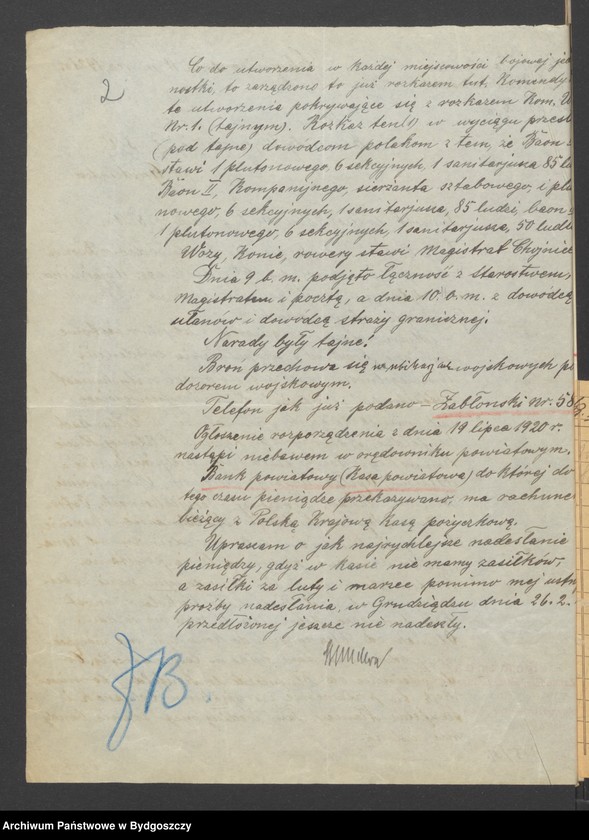 2
Co do utworzenia w każdej miejscowości bojowej jed
nostki, to zarządzono to już rozkazem tut. Komendy
te utworzenia pokrywające się z rozkazem Kom. U
Nr. 1. (tajnym). Rozkaz ten(1) w wyciągu przesł
(pod tajne) dowódcom polakom z tem, że Baon
stawi 1 plutonowego, 6 sekcyjnych, 1 sanitarjusza 85 lu
Baon II, Kompanijnego, sierżanta sztabowego, i plu
nowego, 6 sekcyjnych, 1 sanitarjusza, 85 ludzi, baon
1 plutonowego, 6 sekcyjnych, 1 sanitarjusza, 50 ludzi
Wozy, Konie, rowery stawi Magistrat Chojnice
Dnia 9 b. m. podjęto łączność z starostwem,
Magistratem i pocztą, a dnia 10. b. m. z dowódcą
ułanów i dowódcą straży granicznej.
Narady były tajne!
Broń przechowa się wojskowych p
dozorem wojskowym.
Telefon jak już podano – Zabłoński Nr. 58
Ogłoszenie rozporządzenia z dnia 19 lipca 1920 r.
nastąpi niebawem w orędowniku powiatowym.
Bank powiatowy (Kasa powiatowa) do której do
tego czasu pieniądze przekazywano, ma rachune
bieżący z Polską Krajową Kasą pożyczkową.
Upraszam o jak najrychlejsze nadesłanie
pieniędzy, gdyż w kasie nie mamy zasiłków,
a zasiłki za luty i marzec pomimo mej ustn
prośby nadesłania, w Grudziądzu dnia 26. 2.
przedłożonej jeszcze nie nadeszły.
B.
Archiwum Państwowe w Bydgoszczy